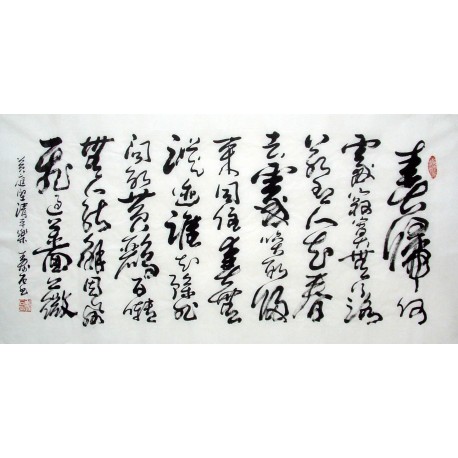 春歸何
處寂寞無行路
若有人知春
去處喚取歸
來同住春無
蹤迹誰知除非
問取黄鸝百囀
無人能解因風
飛過薔薇
黄庭堅清平樂